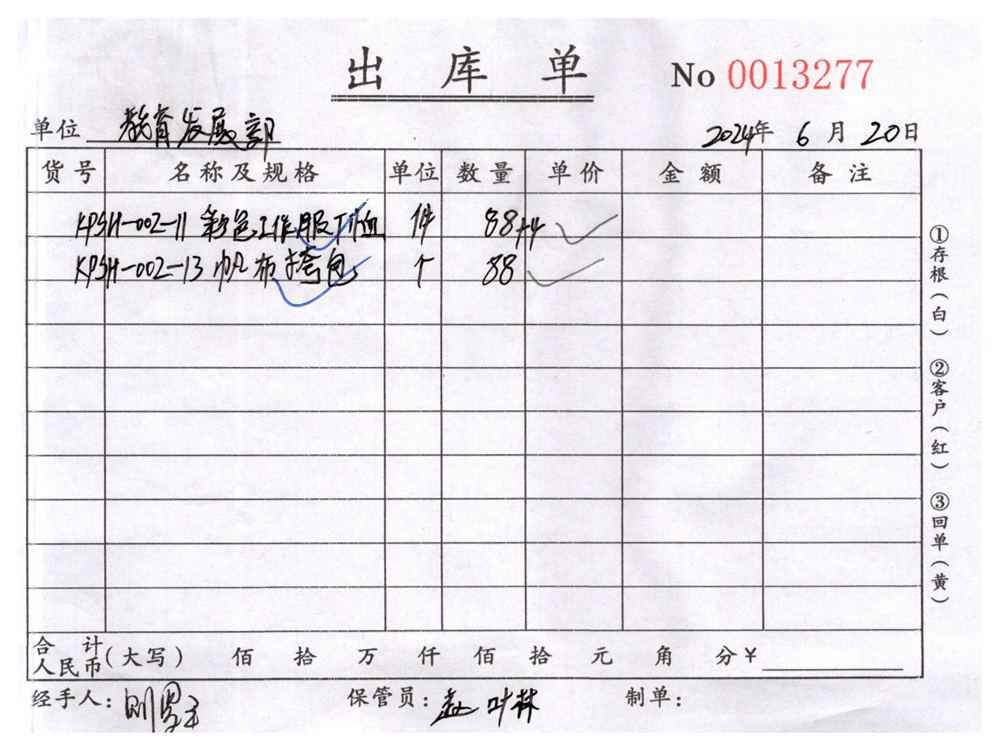 出库单 No 0013277
单位 教育发展部 2024年 6月 20日
货号 名称及规格 单位 数量 单价 金额 备注
KPSH-002-11 彩色工作服T恤 件 88+4
KPSH-002-13 帆布挎包 个 88
①存根(白) ②客户(红) ③回单(黄)
合计人民币(大写) 佰 拾 万 仟 佰 拾 元 角 分 ¥
经手人: 保管员: 赵叶林 制单: